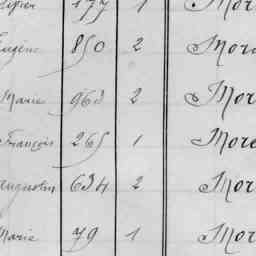 177 1 Mor
Eugène 850 2 Mor
Marie 963 2 Mor
François 265 1 More
634 2 Mor
Marie 79 1 Mor